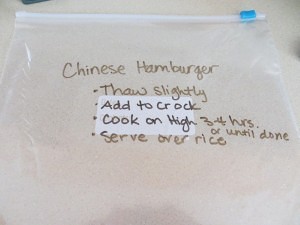 Chinese Hamburger
• Thaw slightly
• Add to Crock
• Cook on High 3-4 hrs.
or until done
• Serve over rice